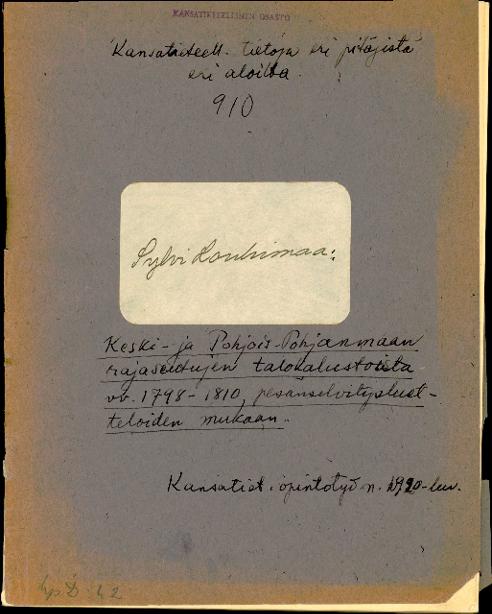 KANSATIETEELLINEN OSASTO
Kansatieteell. tietoja eri pitäjistä
eri aloilta.
910
Sylvi Louhimaa:
Keski- ja Pohjois-Pohjanmaan
rajaseutujen talokalustoista
vv. 1798-1810, pesänselvitysluet-
teloiden mukaan.
Kansatiet. opintotyö n. 1920-luv.